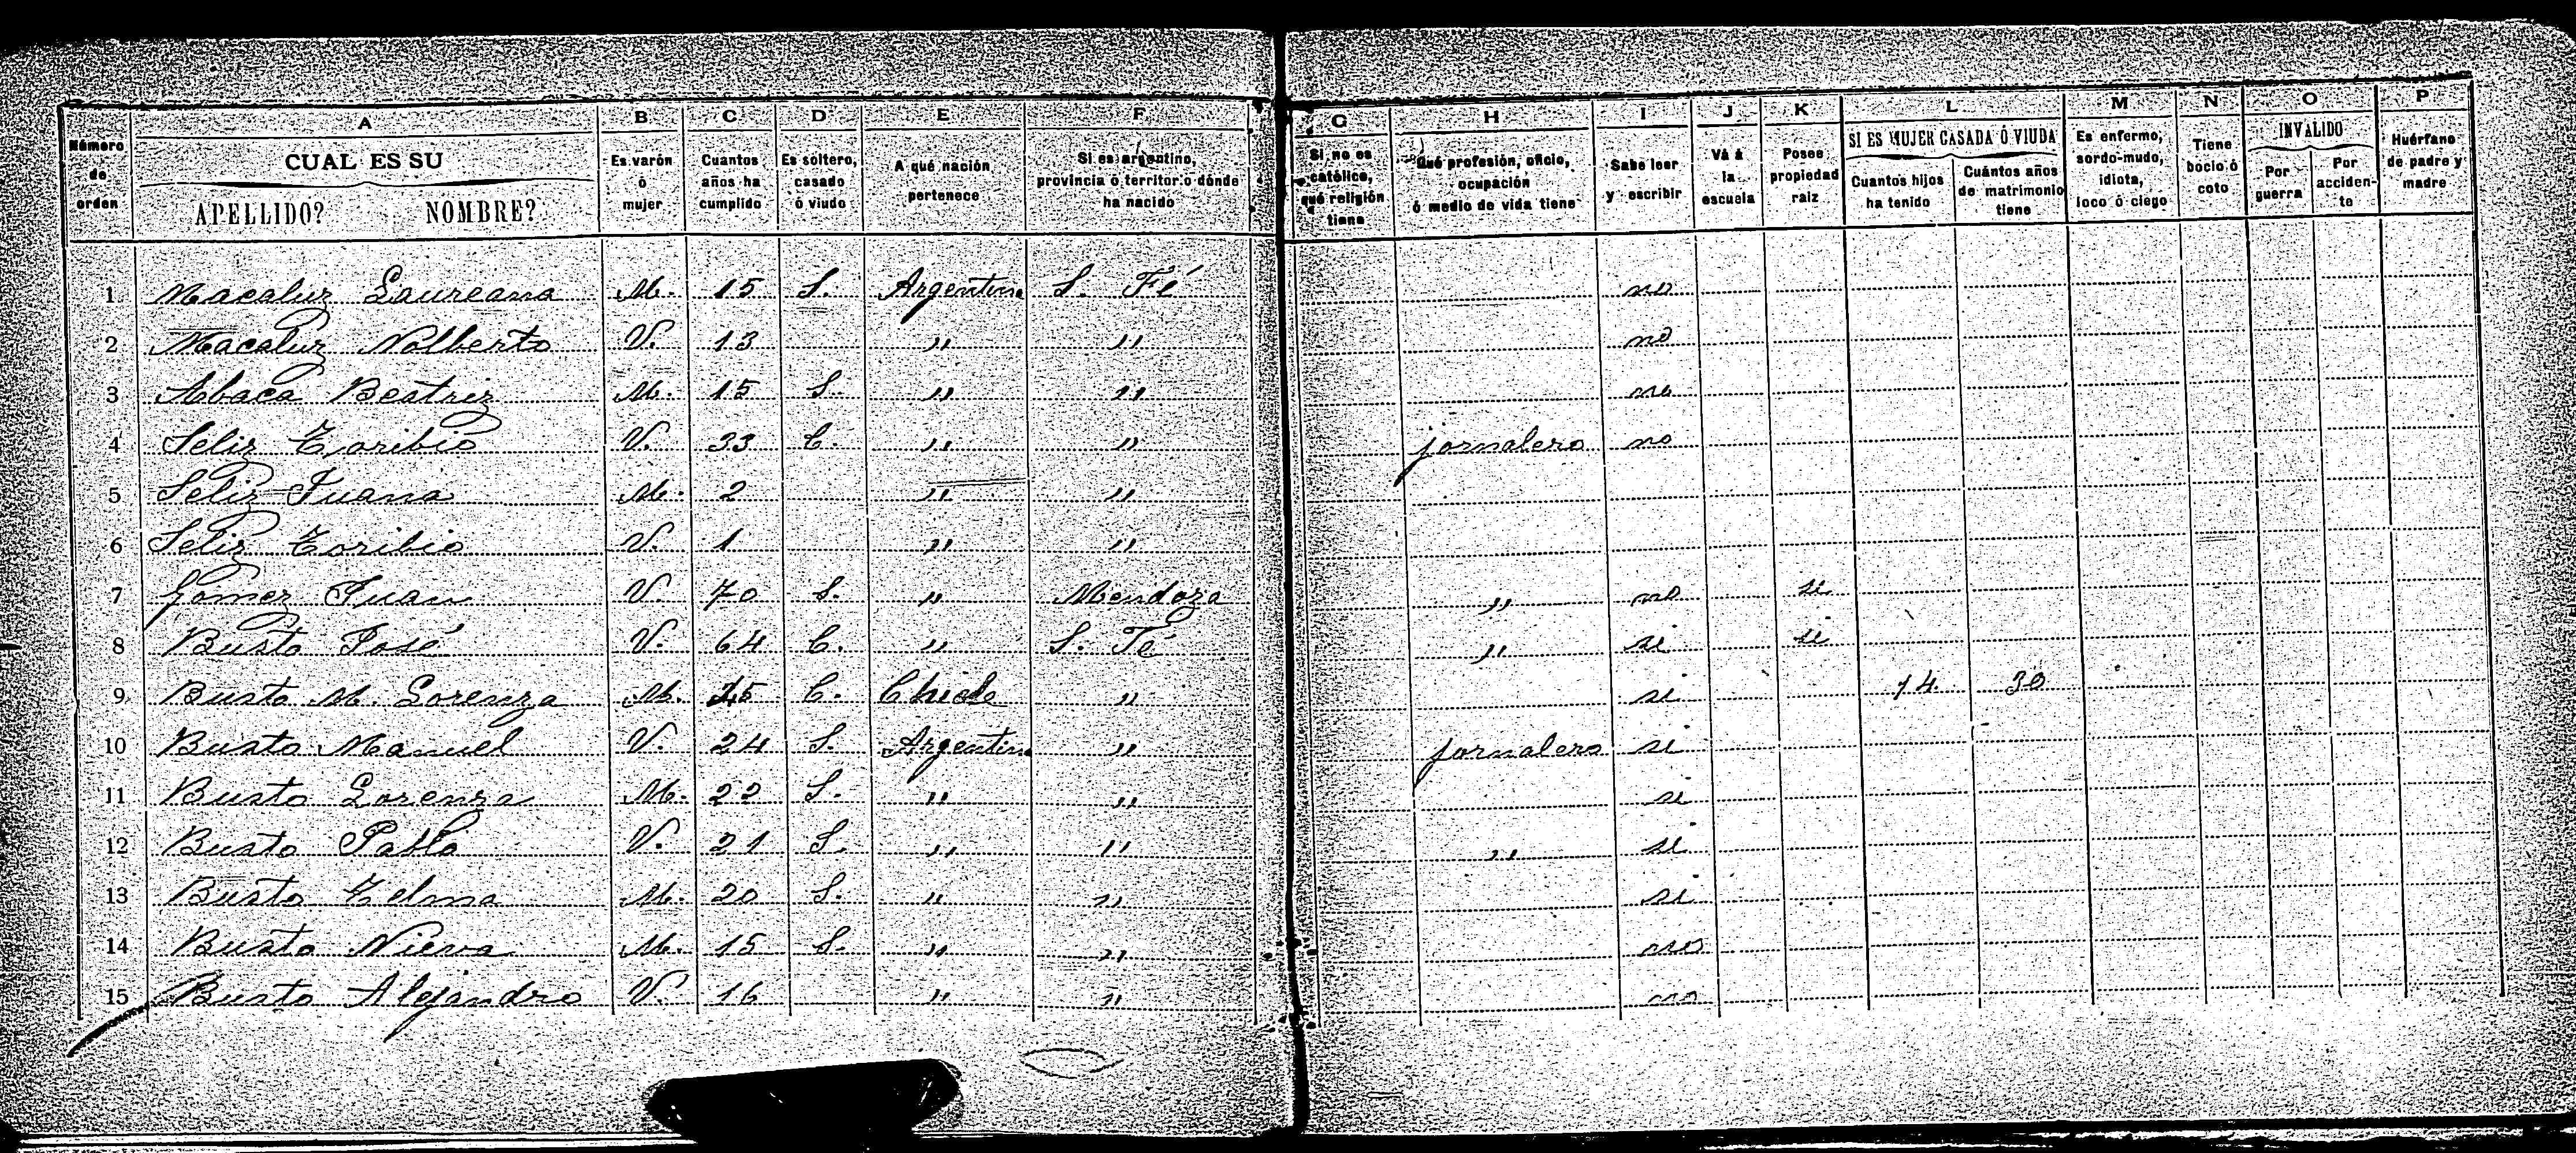 A B C D E F G H I J K L M N O P
Número de orden
CUAL ES SU
APELLIDO? NOMBRE?
Es varón ó mujer
Cuantos años ha cumplido
Es soltero, casado ó viudo
A qué nación pertenece
Si es argentino, provincia ó territorio dónde ha nacido
Si no es católico, qué religión tiene
Qué profesión, oficio, ocupación ó medio de vida tiene
Sabe leer y escribir
Vá á la escuela
Posee propiedad raiz
SI ES MUJER CASADA Ó VIUDA
Cuantos hijos ha tenido
Cuántos años de matrimonio tiene
Es enfermo, sordo-mudo, idiota, loco ó ciego
Tiene bocio ó coto
INVÁLIDO
Por guerra
Por accidente
Huérfano de padre y madre
1 Macaluz Laureana M. 15 S. Argentina S. Fé no
2 Macaluz Nolberto V. 13 " " no
3 Abaca Beatriz M. 15 S. " " no
4 Seliz Toribio V. 33 C. " " jornalero no
5 Seliz Juana M. 2 " "
6 Seliz Toribio V. 1 " "
7 Gomez Juan V. 70 S. " Mendoza " no si
8 Busto José V. 64 C. " S. Fé " si si
9 Busto M. Lorenza M. C. Chile " si 14 30
10 Busto Manuel V. 24 S. Argentina " jornalero si
11 Busto Lorenza M. 22 S. " " si
12 Busto Pablo V. 21 S. " " " si
13 Busto Telma M. 20 S. " " si
14 Busto Nieva M. 15 S. " " no
15 Busto Alejandro V. 16 " " no